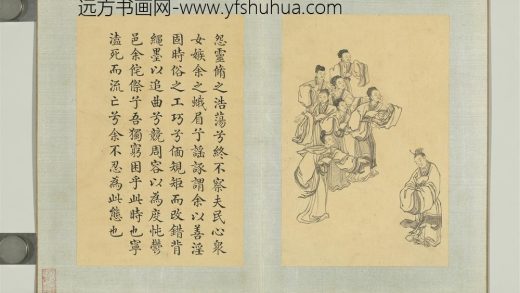 远方书画网-www.yfshuhua.com
怨靈脩之浩蕩兮終不察夫民心衆
女嫉余之蛾眉兮謠諑謂余以善淫
固時俗之工巧兮偭規矩而改錯背
繩墨以追曲兮競周容以為度忳鬱
邑余侘傺兮吾獨窮困乎此時也寧
溘死而流亡兮余不忍為此態也